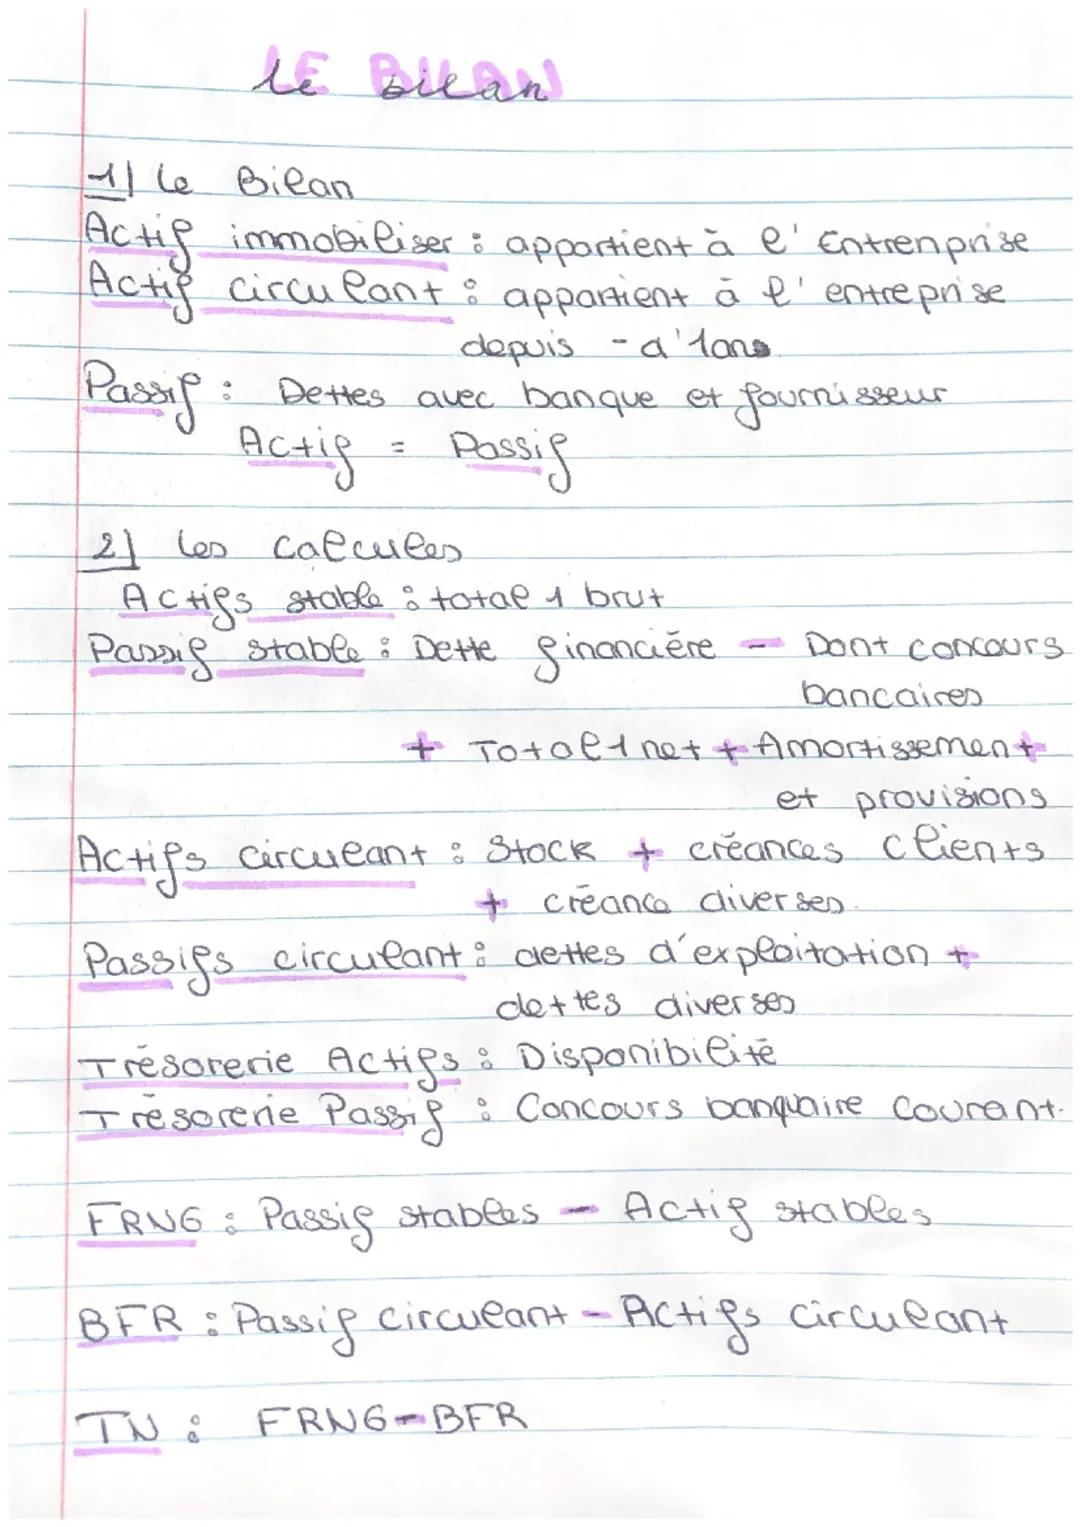 LE BILAN
le bilan
1) Le Bilan
Actif immobiliser : appartient à l'Entrenprise
Actif circulant : appartient à l'entreprise
depuis - d'1ans
Passif : Dettes avec banque et fournisseur
Actif = Passif
2) les calcules
Actifs stable : total 1 brut
Passif stable : Dette financière - Dont concours
bancaires
+ Total 1 net + Amortissement
et provisions
Actifs circulant : Stock + créances clients
+ créance diverses.
Passifs circulant : dettes d'exploitation +
dettes diverses
Trésorerie Actifs : Disponibilité
Trésorerie Passif : Concours banquaire courant.
FRNG : Passif stables - Actif stables
BFR : Passif circulant - Actifs circulant
TN : FRNG - BFR